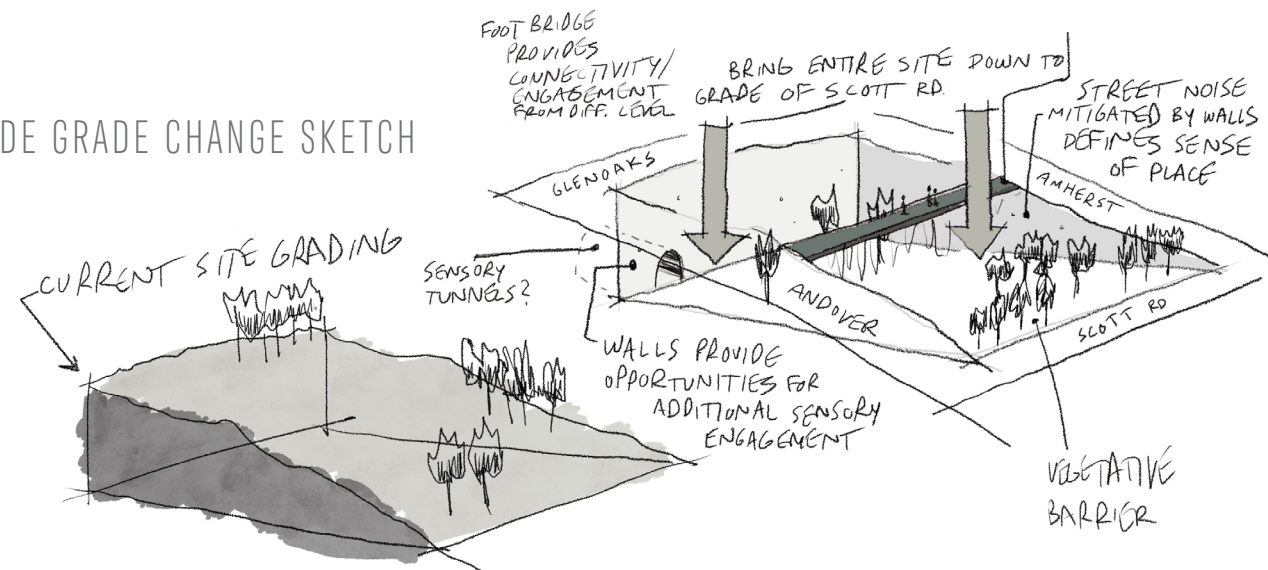 DE GRADE CHANGE SKETCH
FOOT BRIDGE
PROVIDES
CONNECTIVITY/
ENGAGEMENT
FROM DIFF. LEVEL
BRING ENTIRE SITE DOWN TO
GRADE OF SCOTT RD.
STREET NOISE
MITIGATED BY WALLS
DEFINES SENSE
OF PLACE
GLENOAKS
AMHERST
CURRENT SITE GRADING
SENSORY
TUNNELS?
ANDOVER
SCOTT RD
WALLS PROVIDE
OPPORTUNITIES FOR
ADDITIONAL SENSORY
ENGAGEMENT
VEGETATIVE
BARRIER